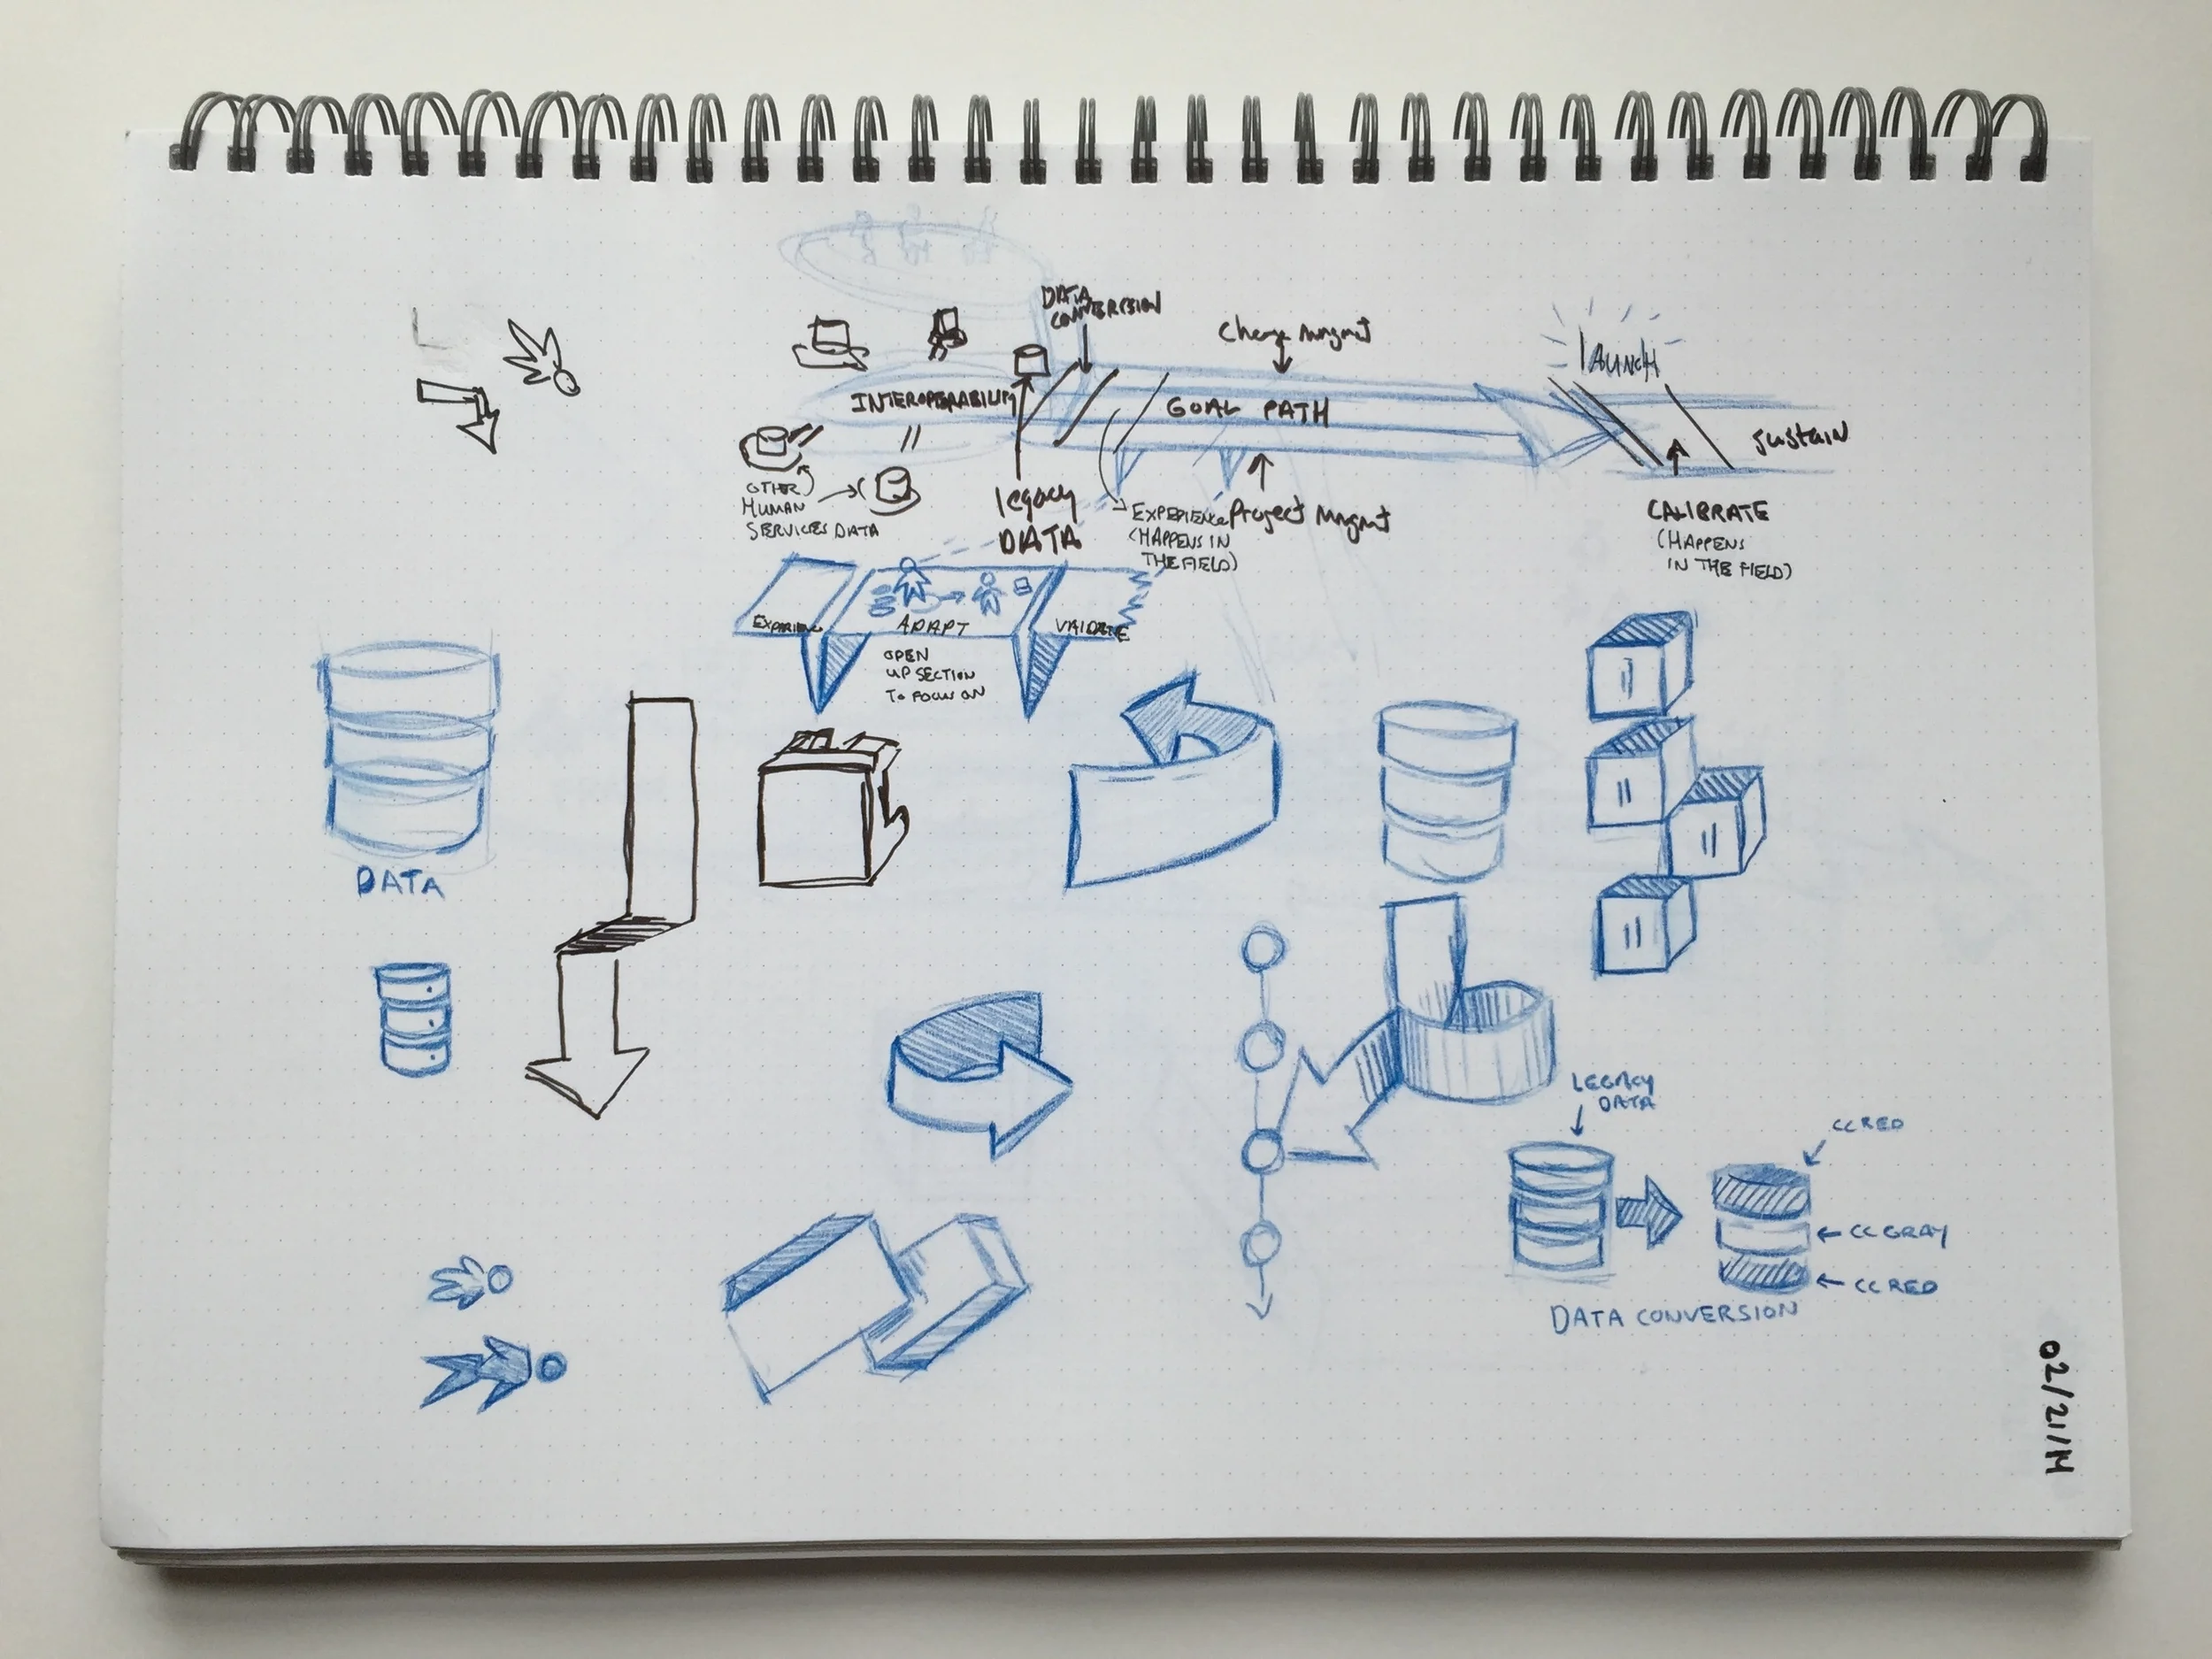 DATA
CONVERSION
Change Mngmt
LAUNCH
INTEROPERABILITY
GOAL PATH
SUSTAIN
OTHER
HUMAN
SERVICES DATA
legacy
DATA
EXPERIENCE
(HAPPENS IN
THE FIELD)
Project Mngmt
CALIBRATE
(HAPPENS
IN THE FIELD)
EXPERIENCE
ADAPT
VALIDATE
OPEN
UP SECTION
TO FOCUS ON
DATA
LEGACY
DATA
CC RED
CC GRAY
CC RED
DATA CONVERSION